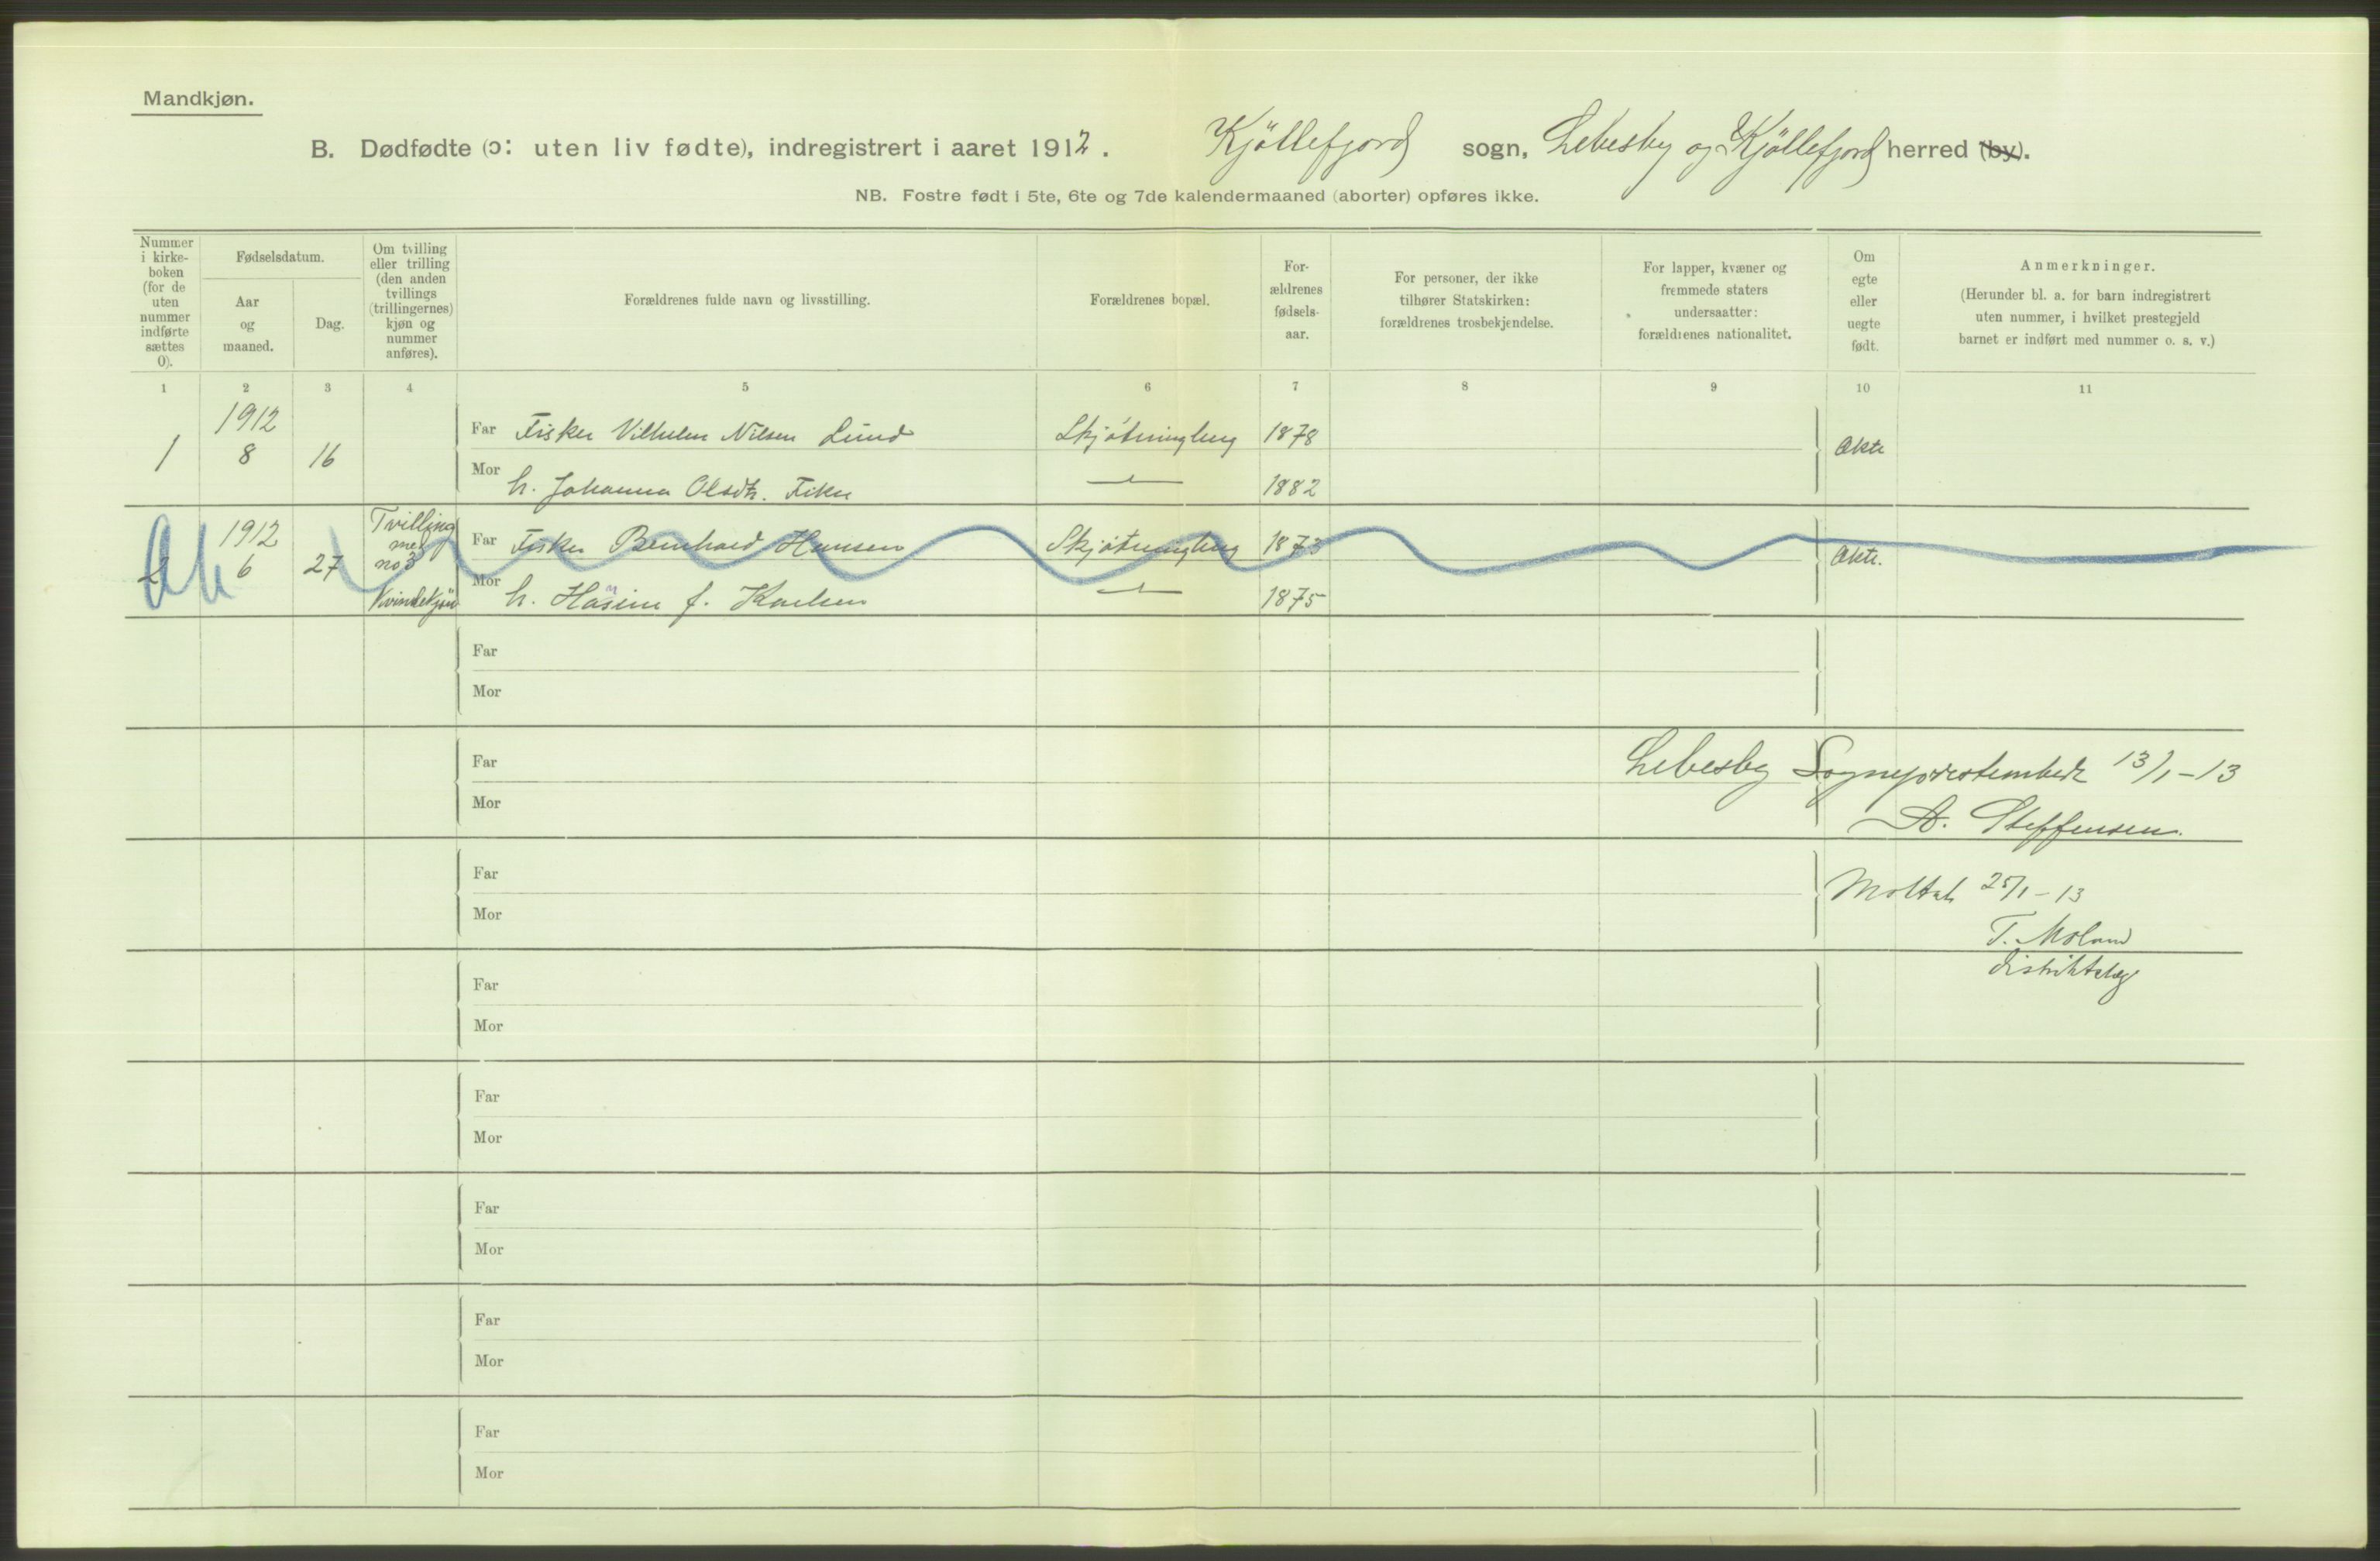 Mandkjøn.
B. Dødfødte (ɔ: uten liv fødte), indregistrert i aaret 1912. Kjöllefjord sogn, Lebesby og Kjöllefjord herred (by).
NB. Fostre født i 5te, 6te og 7de kalendermaaned (aborter) opføres ikke.
Nummer
i kirke-
boken
(for de
uten
nummer
indførte
sættes
0).
Fødselsdatum.
Aar
og
maaned.
Dag.
Om tvilling
eller trilling
(den anden
tvillings
(trillingernes)
kjøn og
nummer
anføres).
Forældrenes fulde navn og livsstilling.
Forældrenes bopæl.
For-
ældrenes
fødsels-
aar.
For personer, der ikke
tilhører Statskirken:
forældrenes trosbekjendelse.
For lapper, kvæner og
fremmede staters
undersaatter:
forældrenes nationalitet.
Om
egte
eller
uegte
født.
Anmerkninger.
(Herunder bl. a. for barn indregistrert
uten nummer, i hvilket prestegjeld
barnet er indført med nummer o. s. v.)
1 2 3 4 5 6 7 8 9 10 11
1 1912 8 16
Far Fisker Vilhelm Nilsen Lund Skjötningberg 1878 Ækte
Mor h. Johanna Olsdtr. 1882
2 1912 6 27
Tvilling
med
no 3
Kvindekjön
Far Fisker Bernhard Hansen Skjötningberg 1873 Ækte.
Mor h. Hansine f. Karlsen 1875
Far
Mor
Far
Mor
Lebesby Sogneprestembede 13/1-13
A. Steffensen.
Far
Mor
Mottat 25/1-13
T. Moland
distriktslæge
Far
Mor
Far
Mor
Far
Mor
Far
Mor
Far
Mor